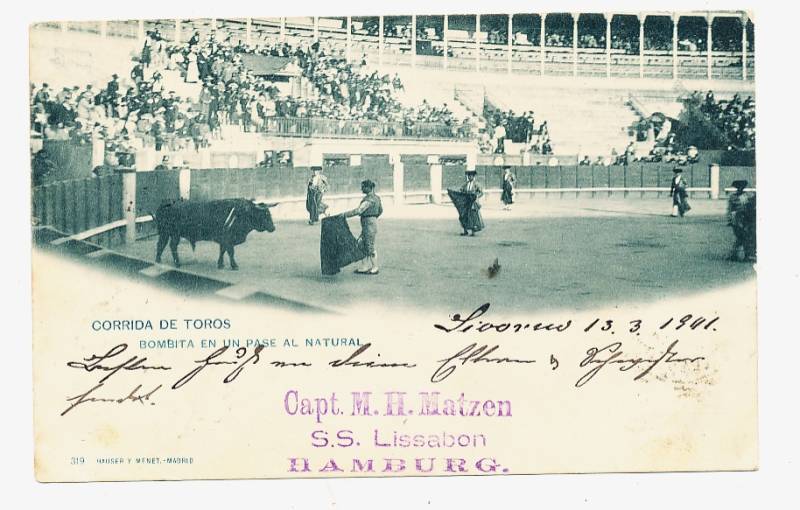 CORRIDA DE TOROS
BOMBITA EN UN PASE AL NATURAL
Livorno 13.3.1901.
Besten Gruß an deine Eltern & Schwester
sendet.
Capt. M. H. Matzen
S.S. Lissabon
HAMBURG.
319 HAUSER Y MENET.-MADRID